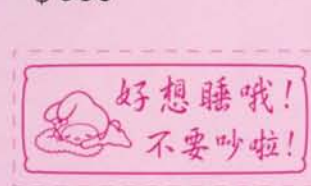 好想睡哦!
不要吵啦!